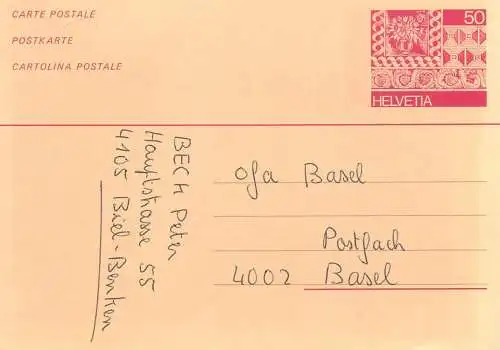 CARTE POSTALE
POSTKARTE
CARTOLINA POSTALE
50
HELVETIA
BECH Peter
Hauptstrasse 55
4105 Biel-Benken
Ofa Basel
Postfach
4002 Basel